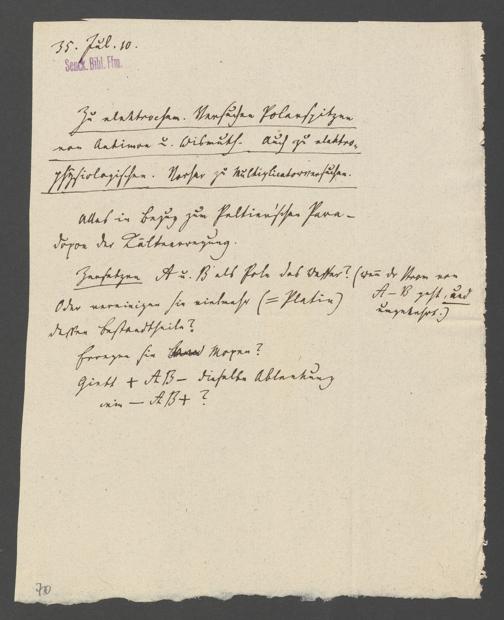 35. Jul. 10.
Senck. Bibl. Ffm.
Zu elektrochem. Versuchen Polarspitzen
von Antimon u. Wismuth. Auch zu elektro-
physiologischen. Vorher zu Multiplicatorversuchen.
Alles in Bezug zum Peltier'schen Para-
doxon der Kälteerregung.
Zersetzen A u. B als Pole das Wasser? (wenn der Strom von
A–B geht, und
umgekehrt.)
Oder vereinigen sie vielmehr (= Platin)
dessen Bestandtheile?
Erregen sie Magen?
Giebt + AB – dieselbe Ablenkung
wie – AB + ?
70